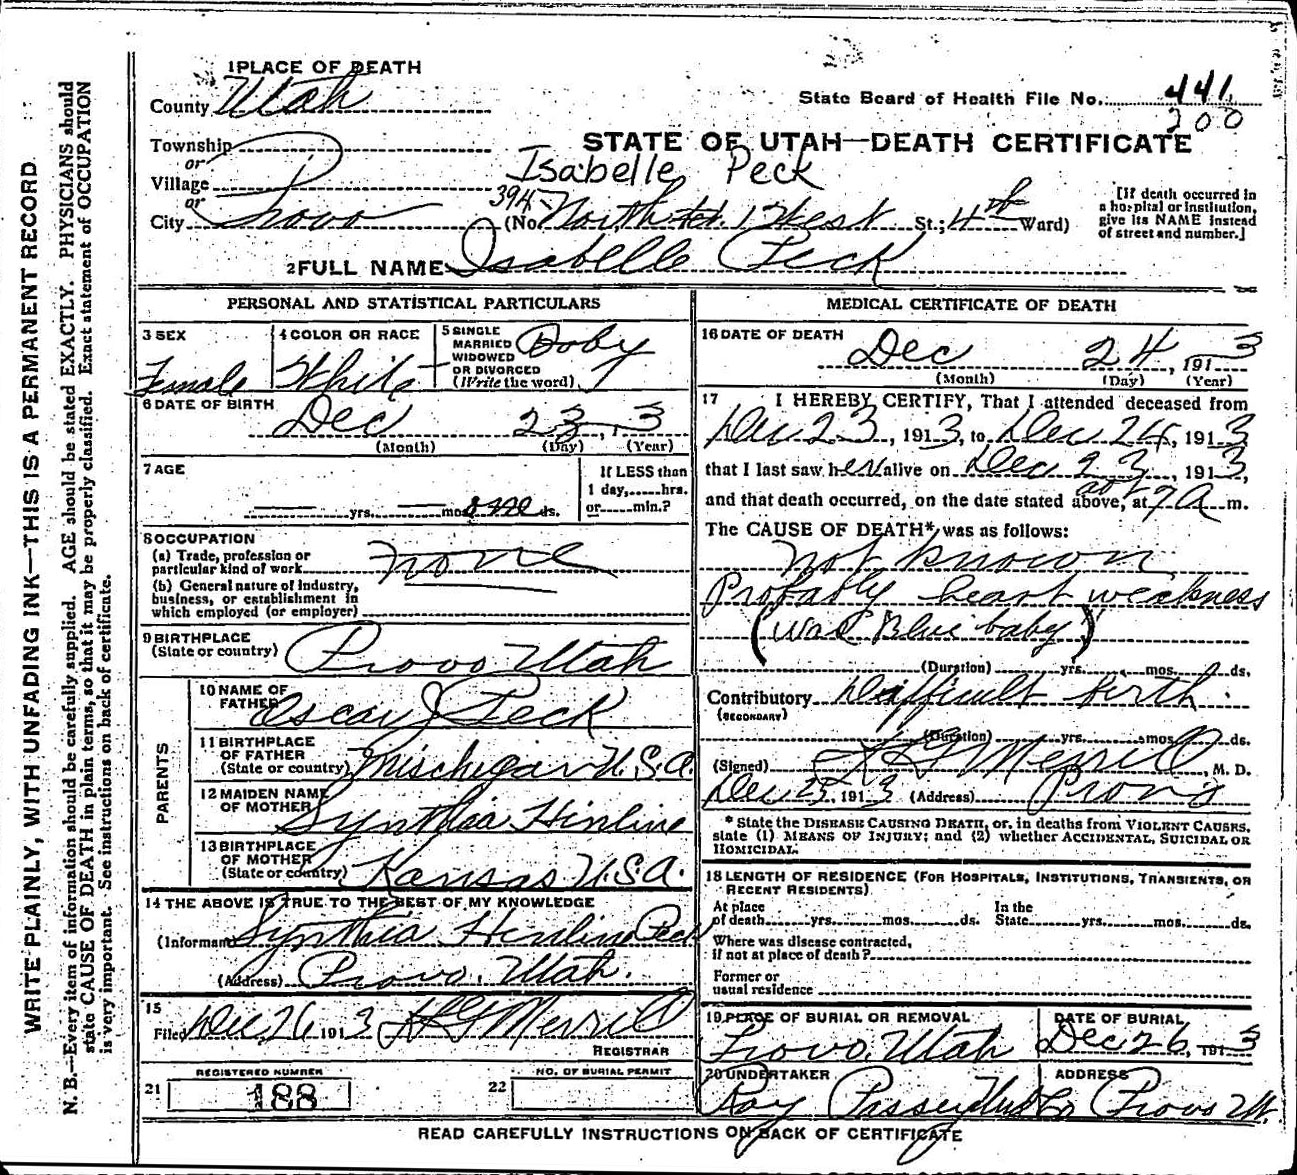 WRITE PLAINLY, WITH UNFADING INK—THIS IS A PERMANENT RECORD
N. B.—Every item of information should be carefully supplied. AGE should be stated EXACTLY. PHYSICIANS should
state CAUSE OF DEATH in plain terms, so that it may be properly classified. Exact statement of OCCUPATION
is very important. See instructions on back of certificate.
1 PLACE OF DEATH
County Utah
State Board of Health File No. 441
200
Township
or
Village
or
City Provo
STATE OF UTAH—DEATH CERTIFICATE
Isabelle Peck
394
(No North 1 West St.; 4th Ward)
[If death occurred in
a hospital or institution,
give its NAME instead
of street and number.]
2 FULL NAME Isabelle Peck
PERSONAL AND STATISTICAL PARTICULARS
3 SEX
Female
4 COLOR OR RACE
White
5 SINGLE
MARRIED
WIDOWED
OR DIVORCED
(Write the word)
Baby
6 DATE OF BIRTH
Dec 23, 3
(Month) (Day) (Year)
7 AGE
— yrs. — mos. one ds.
If LESS than
1 day,......hrs.
or......min.?
8 OCCUPATION
(a) Trade, profession or
particular kind of work none
(b) General nature of industry,
business, or establishment in
which employed (or employer)
9 BIRTHPLACE
(State or country) Provo Utah
PARENTS
10 NAME OF
FATHER Oscar J Peck
11 BIRTHPLACE
OF FATHER
(State or country) Mischigan U.S.A.
12 MAIDEN NAME
OF MOTHER Synthia Hinline
13 BIRTHPLACE
OF MOTHER
(State or country) Kansas U.S.A.
14 THE ABOVE IS TRUE TO THE BEST OF MY KNOWLEDGE
(Informant Synthia Hinline Peck
(Address) Provo, Utah.
15
Filed Dec 26 1913 H G Merrill
REGISTRAR
21
REGISTERED NUMBER
188
22
NO. OF BURIAL PERMIT
MEDICAL CERTIFICATE OF DEATH
16 DATE OF DEATH
Dec 24, 1913
(Month) (Day) (Year)
17 I HEREBY CERTIFY, That I attended deceased from
Dec 23, 1913, to Dec 24, 1913
that I last saw her alive on Dec 23, 1913,
and that death occurred, on the date stated above, at 7 A m.
The CAUSE OF DEATH*, was as follows:
not known
Probably heart weakness
(was Blue baby)
(Duration) yrs. mos. ds.
Contributory Difficult birth
(SECONDARY)
(Duration) yrs. mos. ds.
(Signed) H G Merrill, M. D.
Dec 25, 1913 (Address) Provo
* State the DISEASE CAUSING DEATH, or, in deaths from VIOLENT CAUSES,
state (1) MEANS OF INJURY; and (2) whether ACCIDENTAL, SUICIDAL OR
HOMICIDAL.
18 LENGTH OF RESIDENCE (FOR HOSPITALS, INSTITUTIONS, TRANSIENTS, OR
RECENT RESIDENTS)
At place
of death yrs. mos. ds.
In the
State yrs. mos. ds.
Where was disease contracted,
if not at place of death?
Former or
usual residence
19 PLACE OF BURIAL OR REMOVAL
Provo, Utah
DATE OF BURIAL
Dec 26, 1913
20 UNDERTAKER
Roy Passey Und Co
ADDRESS
Provo Ut.
READ CAREFULLY INSTRUCTIONS ON BACK OF CERTIFICATE